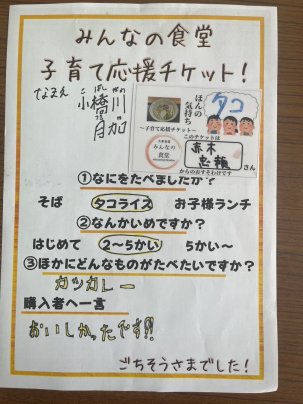 みんなの食堂
子育て応援チケット！
なまえ
小橋川
ほんの
気持ち
タコ
～子育て応援チケット～
このチケットは
みんなの
食堂
赤木
さん
からのおすそわけです
①なにをたべましたか？
そば タコライス お子様ランチ
②なんかいめですか？
はじめて 2～5かい 5かい～
③ほかにどんなものがたべたいですか？
カツカレー
購入者へ一言
おいしかったです!!
ごちそうさまでした！